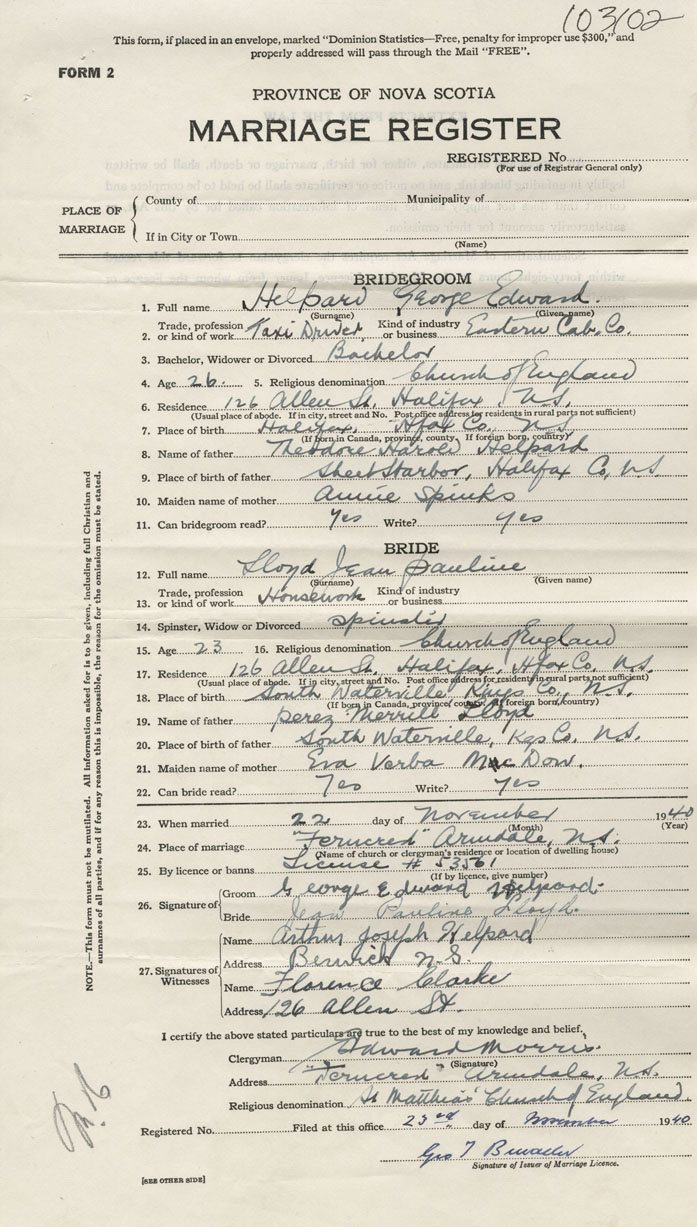 103102
This form, if placed in an envelope, marked "Dominion Statistics—Free, penalty for improper use $300," and
properly addressed will pass through the Mail "FREE".
FORM 2
PROVINCE OF NOVA SCOTIA
MARRIAGE REGISTER
REGISTERED No.
(For use of Registrar General only)
PLACE OF MARRIAGE
County of Municipality of
If in City or Town
(Name)
BRIDEGROOM
1. Full name Helpard George Edward.
(Surname) (Given name)
2. Trade, profession or kind of work Taxi Driver Kind of industry or business Eastern Cab. Co.
3. Bachelor, Widower or Divorced Bachelor
4. Age 26. 5. Religious denomination Church of England
6. Residence 126 Allen St. Halifax, N.S.
(Usual place of abode. If in city, street and No. Post office address for residents in rural parts not sufficient)
7. Place of birth Halifax, Hfax Co. N.S.
(If born in Canada, province, county. If foreign born, country)
8. Name of father Theodore Harold Helpard
9. Place of birth of father Sheet Harbor, Halifax Co, N.S
10. Maiden name of mother Annie Spinks
11. Can bridegroom read? Yes Write? yes
BRIDE
12. Full name Lloyd Jean Pauline
(Surname) (Given name)
13. Trade, profession or kind of work Housework Kind of industry or business
14. Spinster, Widow or Divorced Spinster
15. Age 23 16. Religious denomination Church of England
17. Residence 126 Allen St, Halifax, Hfax Co. N.S.
(Usual place of abode. If in city, street and No. Post office address for residents in rural parts not sufficient)
18. Place of birth South Waterville, Kings Co., N.S.
(If born in Canada, province, county. If foreign born, country)
19. Name of father Perez Merrill Lloyd
20. Place of birth of father South Waterville, Kgs Co. N.S.
21. Maiden name of mother Eva Verba MacDow.
22. Can bride read? Yes Write? yes
23. When married 22 day of November 1940
(Month) (Year)
24. Place of marriage Armdale, N.S.
(Name of church or clergyman's residence or location of dwelling house)
25. By licence or banns License # 53561
(If by licence, give number)
26. Signature of
Groom George Edward Helpard
Bride Jean Pauline Lloyd.
27. Signatures of Witnesses
Name Arthur Joseph Helpard
Address Berwick N.S.
Name Florence Clarke
Address 126 Allen St.
I certify the above stated particulars are true to the best of my knowledge and belief.
Clergyman Edward Morris.
(Signature)
Address Armdale, N.S.
Religious denomination St Matthias' Church of England
Registered No. Filed at this office 23rd day of November 1940
Geo T
Signature of Issuer of Marriage Licence.
[SEE OTHER SIDE]
NOTE.—This form must not be mutilated. All information asked for is to be given, including full Christian and
surnames of all parties, and if for any reason this is impossible, the reason for the omission must be stated.